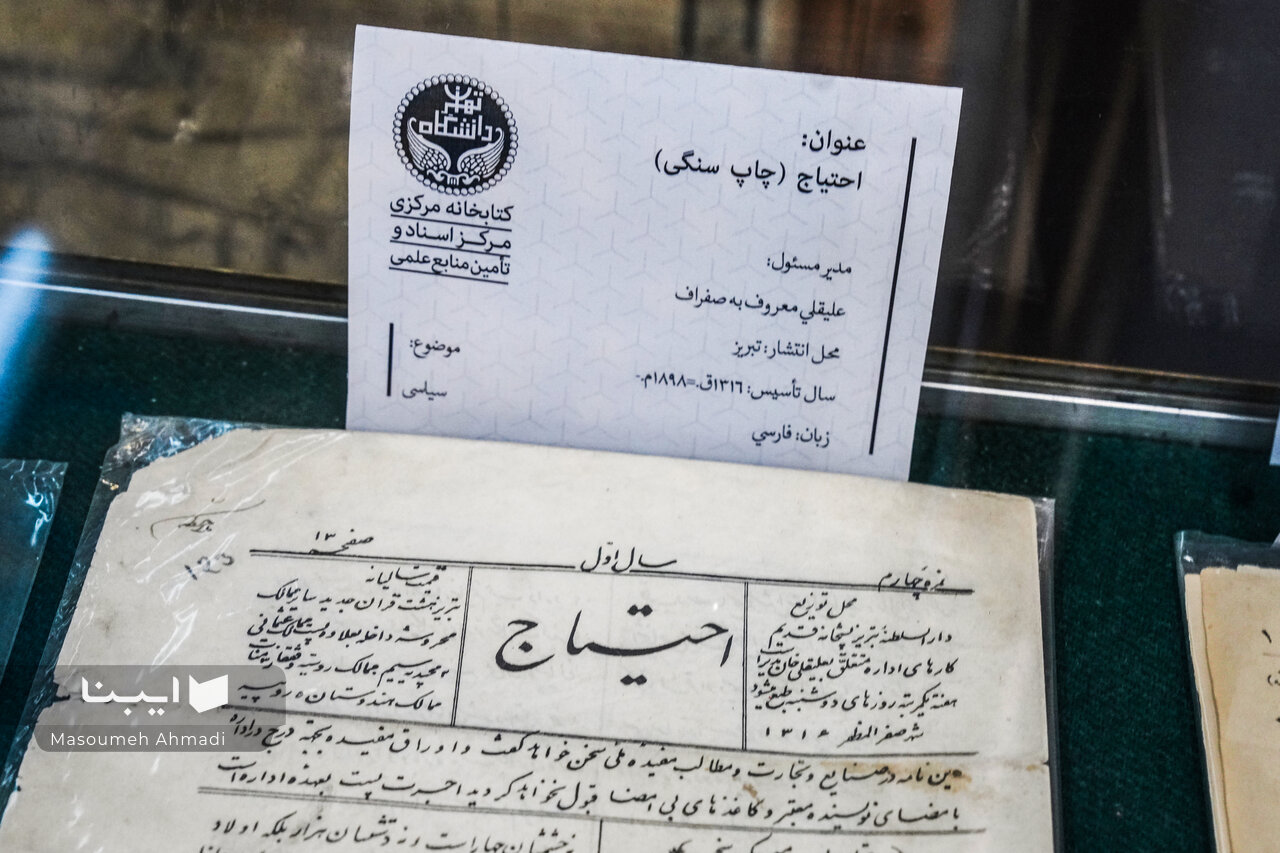 عنوان:
احتیاج (چاپ سنگی)
مدیر مسئول:
علیقلي معروف به صفراف
محل انتشار: تبریز
سال تأسیس: ۱۳۱۶ق.=۱۸۹۸م.-
زبان: فارسي
دانشگاه تهران
کتابخانه مرکزی
مرکز اسناد و
تأمین منابع علمی
موضوع:
سیاسی
نمره چهارم
سال اوّل
صفحه ۱۳
محل توزیع
دار السلطنه تبریز تیمچانه قدیم
کارهای اداره متعلق بعلیقلی خان
هفته یکمرتبه روزهای دوشنبه طبع میشود
شهر صفر المظفر ۱۳۱۶
احتیاج
قیمت سالیانه
تبریز هشت قران جدید سایر ممالک
محروسه
ممالک روسیه و قفقازیه
ممالک هندوستان ۵ روپیه
این نامه در صنایع و تجارت و مطالب مفیده ملی سخن خواهد گفت و اوراق مفیده بجهة درج در اداره
با مضای نویسنده معتبر و کاغذهای بی امضا قبول نخواهد کردید اجرت پست بعهده اداره است
ایبنا
Masoumeh Ahmadi